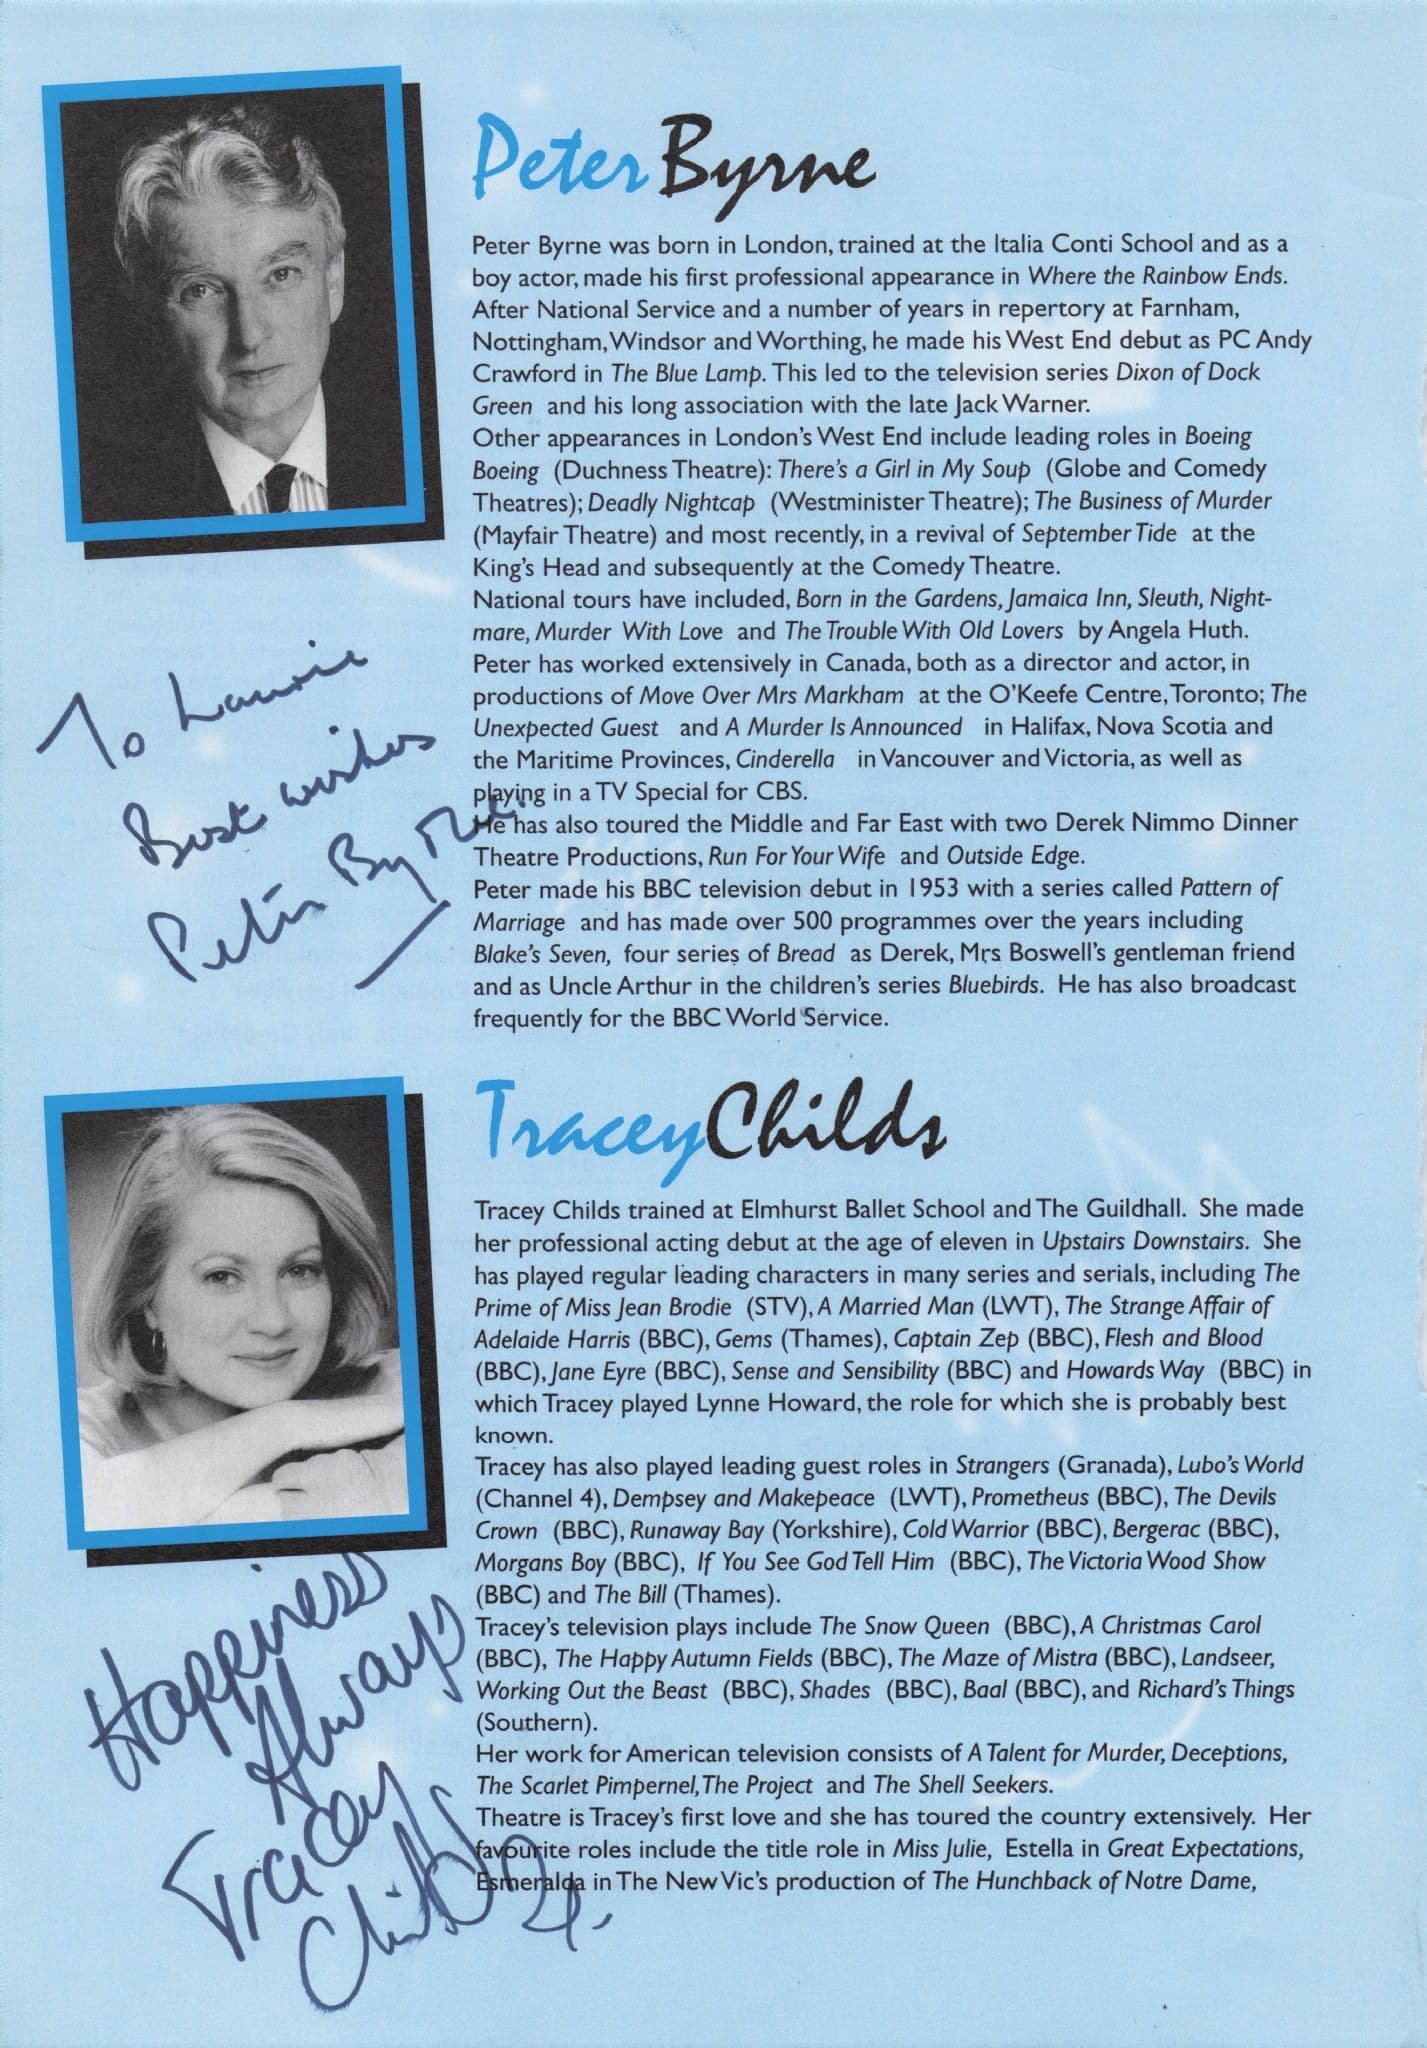 Peter Byrne
Peter Byrne was born in London, trained at the Italia Conti School and as a
boy actor, made his first professional appearance in Where the Rainbow Ends.
After National Service and a number of years in repertory at Farnham,
Nottingham, Windsor and Worthing, he made his West End debut as PC Andy
Crawford in The Blue Lamp. This led to the television series Dixon of Dock
Green and his long association with the late Jack Warner.
Other appearances in London's West End include leading roles in Boeing
Boeing (Duchness Theatre): There's a Girl in My Soup (Globe and Comedy
Theatres); Deadly Nightcap (Westminister Theatre); The Business of Murder
(Mayfair Theatre) and most recently, in a revival of September Tide at the
King's Head and subsequently at the Comedy Theatre.
National tours have included, Born in the Gardens, Jamaica Inn, Sleuth, Night-
mare, Murder With Love and The Trouble With Old Lovers by Angela Huth.
Peter has worked extensively in Canada, both as a director and actor, in
productions of Move Over Mrs Markham at the O'Keefe Centre, Toronto; The
Unexpected Guest and A Murder Is Announced in Halifax, Nova Scotia and
the Maritime Provinces, Cinderella in Vancouver and Victoria, as well as
playing in a TV Special for CBS.
He has also toured the Middle and Far East with two Derek Nimmo Dinner
Theatre Productions, Run For Your Wife and Outside Edge.
Peter made his BBC television debut in 1953 with a series called Pattern of
Marriage and has made over 500 programmes over the years including
Blake's Seven, four series of Bread as Derek, Mrs Boswell's gentleman friend
and as Uncle Arthur in the children's series Bluebirds. He has also broadcast
frequently for the BBC World Service.
To Laurie
Best wishes
Peter Byrne.
Tracey Childs
Tracey Childs trained at Elmhurst Ballet School and The Guildhall. She made
her professional acting debut at the age of eleven in Upstairs Downstairs. She
has played regular leading characters in many series and serials, including The
Prime of Miss Jean Brodie (STV), A Married Man (LWT), The Strange Affair of
Adelaide Harris (BBC), Gems (Thames), Captain Zep (BBC), Flesh and Blood
(BBC), Jane Eyre (BBC), Sense and Sensibility (BBC) and Howards Way (BBC) in
which Tracey played Lynne Howard, the role for which she is probably best
known.
Tracey has also played leading guest roles in Strangers (Granada), Lubo's World
(Channel 4), Dempsey and Makepeace (LWT), Prometheus (BBC), The Devils
Crown (BBC), Runaway Bay (Yorkshire), Cold Warrior (BBC), Bergerac (BBC),
Morgans Boy (BBC), If You See God Tell Him (BBC), The Victoria Wood Show
(BBC) and The Bill (Thames).
Tracey's television plays include The Snow Queen (BBC), A Christmas Carol
(BBC), The Happy Autumn Fields (BBC), The Maze of Mistra (BBC), Landseer,
Working Out the Beast (BBC), Shades (BBC), Baal (BBC), and Richard's Things
(Southern).
Her work for American television consists of A Talent for Murder, Deceptions,
The Scarlet Pimpernel, The Project and The Shell Seekers.
Theatre is Tracey's first love and she has toured the country extensively. Her
favourite roles include the title role in Miss Julie, Estella in Great Expectations,
Esmeralda in The New Vic's production of The Hunchback of Notre Dame,
Happiness
Always
Tracey
Childs